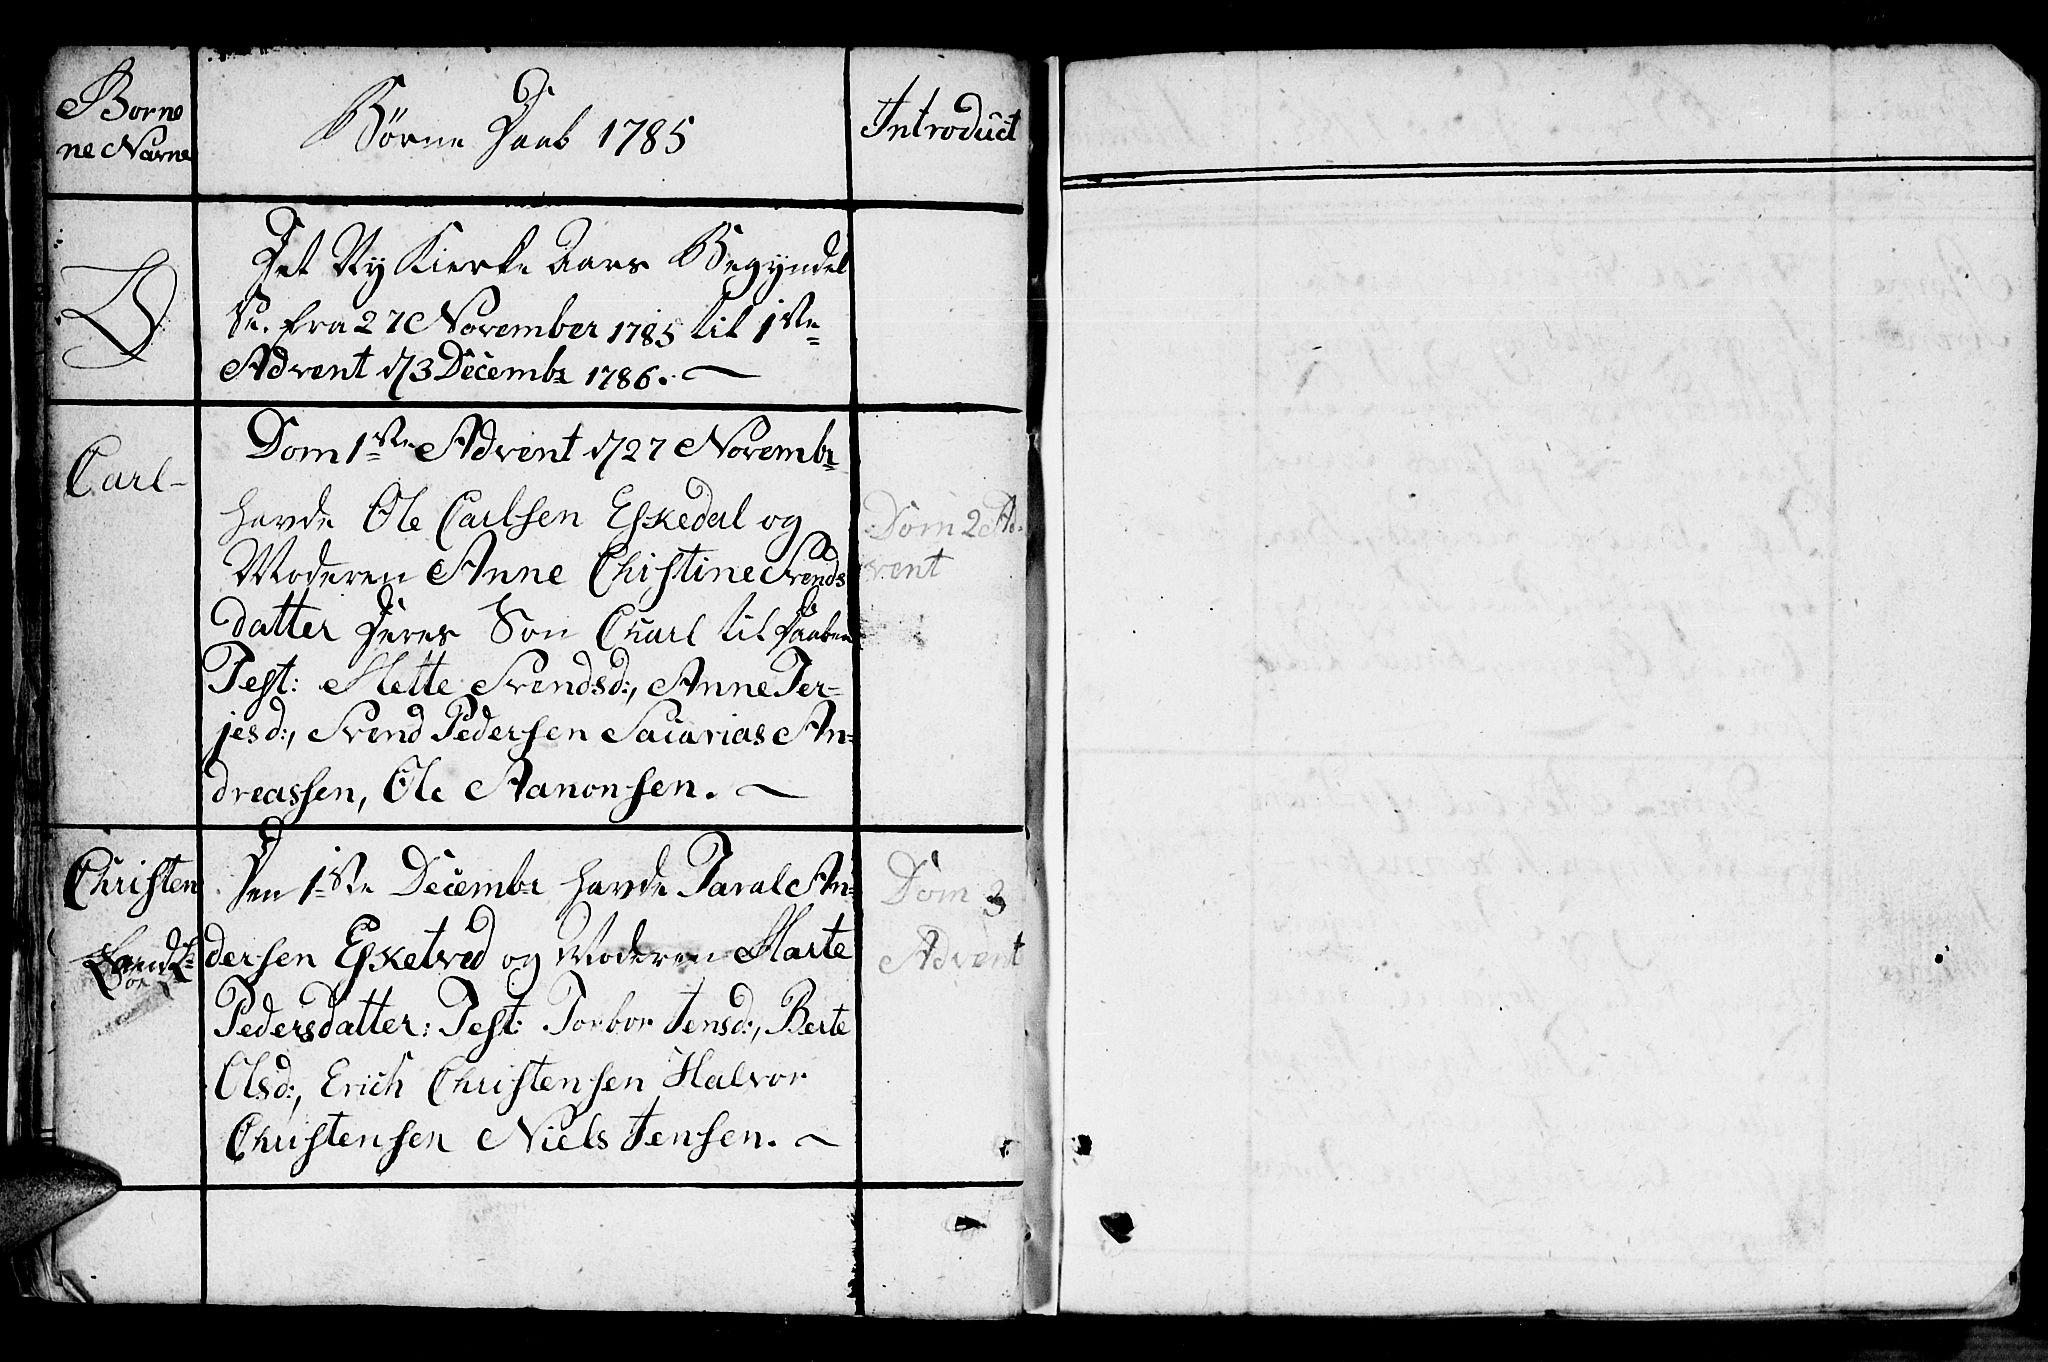 Børne
ne Navne
Børne Daab 1785
Introduct
Det Ny Kierke Aars Begyndel
se. fra 27 November 1785 til 1ste
Advent d/3 Decembr 1786.
Carl
Dom 1ste Advent d/27 Novembr
havde Ole Carlsen Eskedal og
Moderen Anne Christine Svends
datter Deres Søn Carl til Daaben
Test: Mette Svendsd:, Anne Ter=
jesd:, Svend Pedersen Sacarias An=
dreassen, Ole Aanonsen.
Dom 2 Ad
vent
Christen
Den 1ste Decembr havde Taral An=
dersen Esketved og Moderen Marte
Pedersdatter: Test: Torbor Jensd:, Berte
Olsd:, Erich Christensen Halvor
Christensen Niels Jensen.
Dom 3
Advent